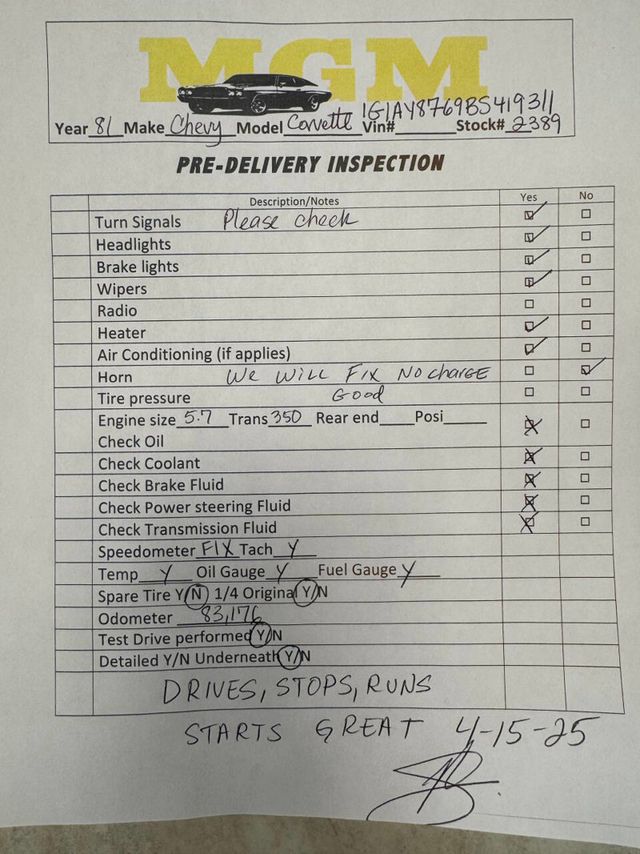 MGM
Year 81 Make Chevy Model Corvette Vin# 1G1AY8769BS419311 Stock# 2389
PRE-DELIVERY INSPECTION
Description/Notes Yes No
Turn Signals Please check
Headlights
Brake lights
Wipers
Radio
Heater
Air Conditioning (if applies)
Horn We WILL FIX No charge
Tire pressure Good
Engine size 5.7 Trans 350 Rear end____ Posi_____
Check Oil
Check Coolant
Check Brake Fluid
Check Power steering Fluid
Check Transmission Fluid
Speedometer FIX Tach Y
Temp Y Oil Gauge Y Fuel Gauge Y
Spare Tire Y/N 1/4 Original Y/N
Odometer 83,176
Test Drive performed Y/N
Detailed Y/N Underneath Y/N
DRIVES, STOPS, RUNS
STARTS GREAT 4-15-25